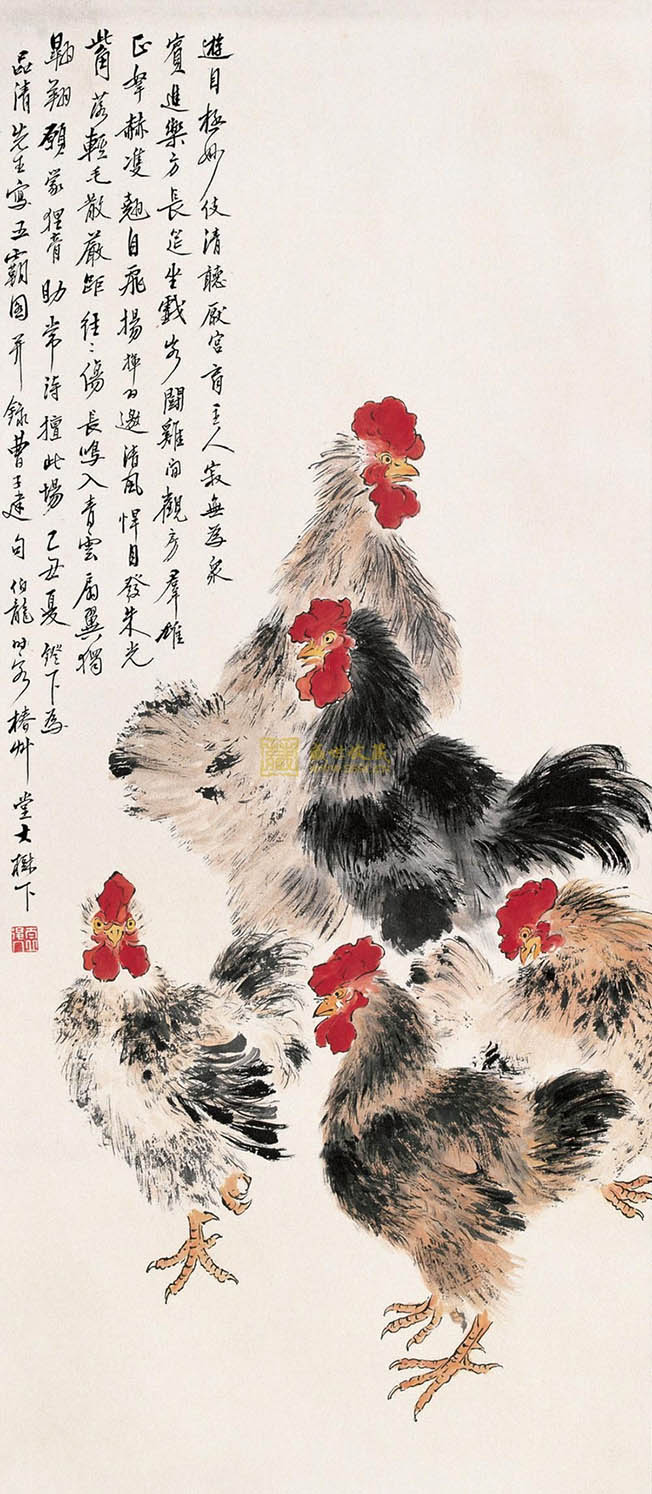 遊目極妙伎清聽厭宮商主人寂無為眾
賓進樂方長筵坐戲客鬪雞間觀房羣雄
正翕赫雙翹自飛揚揮羽邀清風悍目發朱光
觜落輕毛散嚴距往〻傷長鳴入青雲扇翼獨
翱翔願蒙狸膏助常得擅此場 乙丑夏鐙下為
品清先生寫五霸圖并錄曹子建句伯龍時客椿草堂大樹下